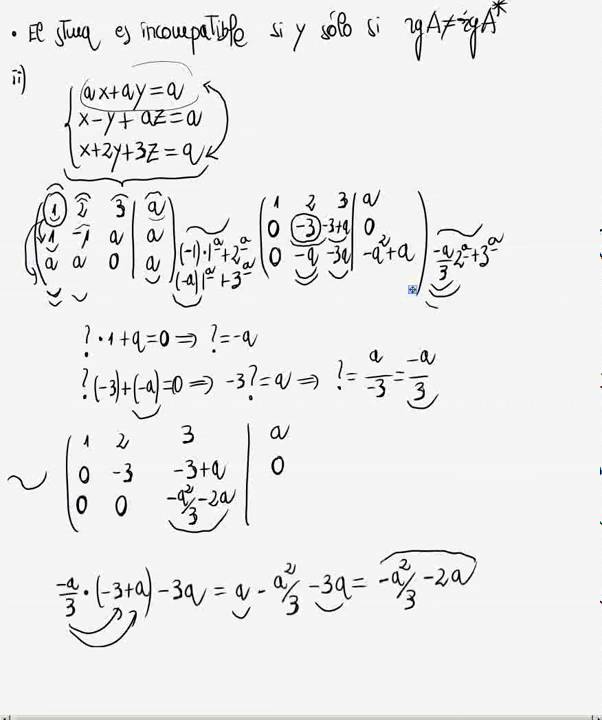 • El stma es incompatible si y sólo si rgA≠rgA*
ii)
ax+ay=a
x-y+az=a
x+2y+3z=a
1 2 3 | a
1 -1 a | a
a a 0 | a
(-1)·1ª+2ª
(-a)1ª+3ª
1 2 3 | a
0 -3 -3+a | 0
0 -a -3a | -a²+a
-a/3 2ª+3ª
?·1+a=0 ⇒ ?=-a
?(-3)+(-a)=0 ⇒ -3?=a ⇒ ?= a/-3 = -a/3
~
1 2 3 | a
0 -3 -3+a | 0
0 0 -a²/3-2a |
-a/3·(-3+a)-3a = a - a²/3 -3a = -a²/3 -2a